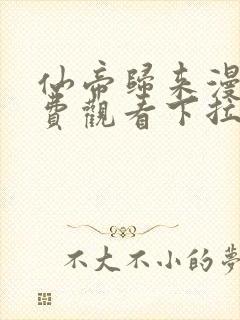 仙帝歸来漫
費觀看下拉
不大不小的夢